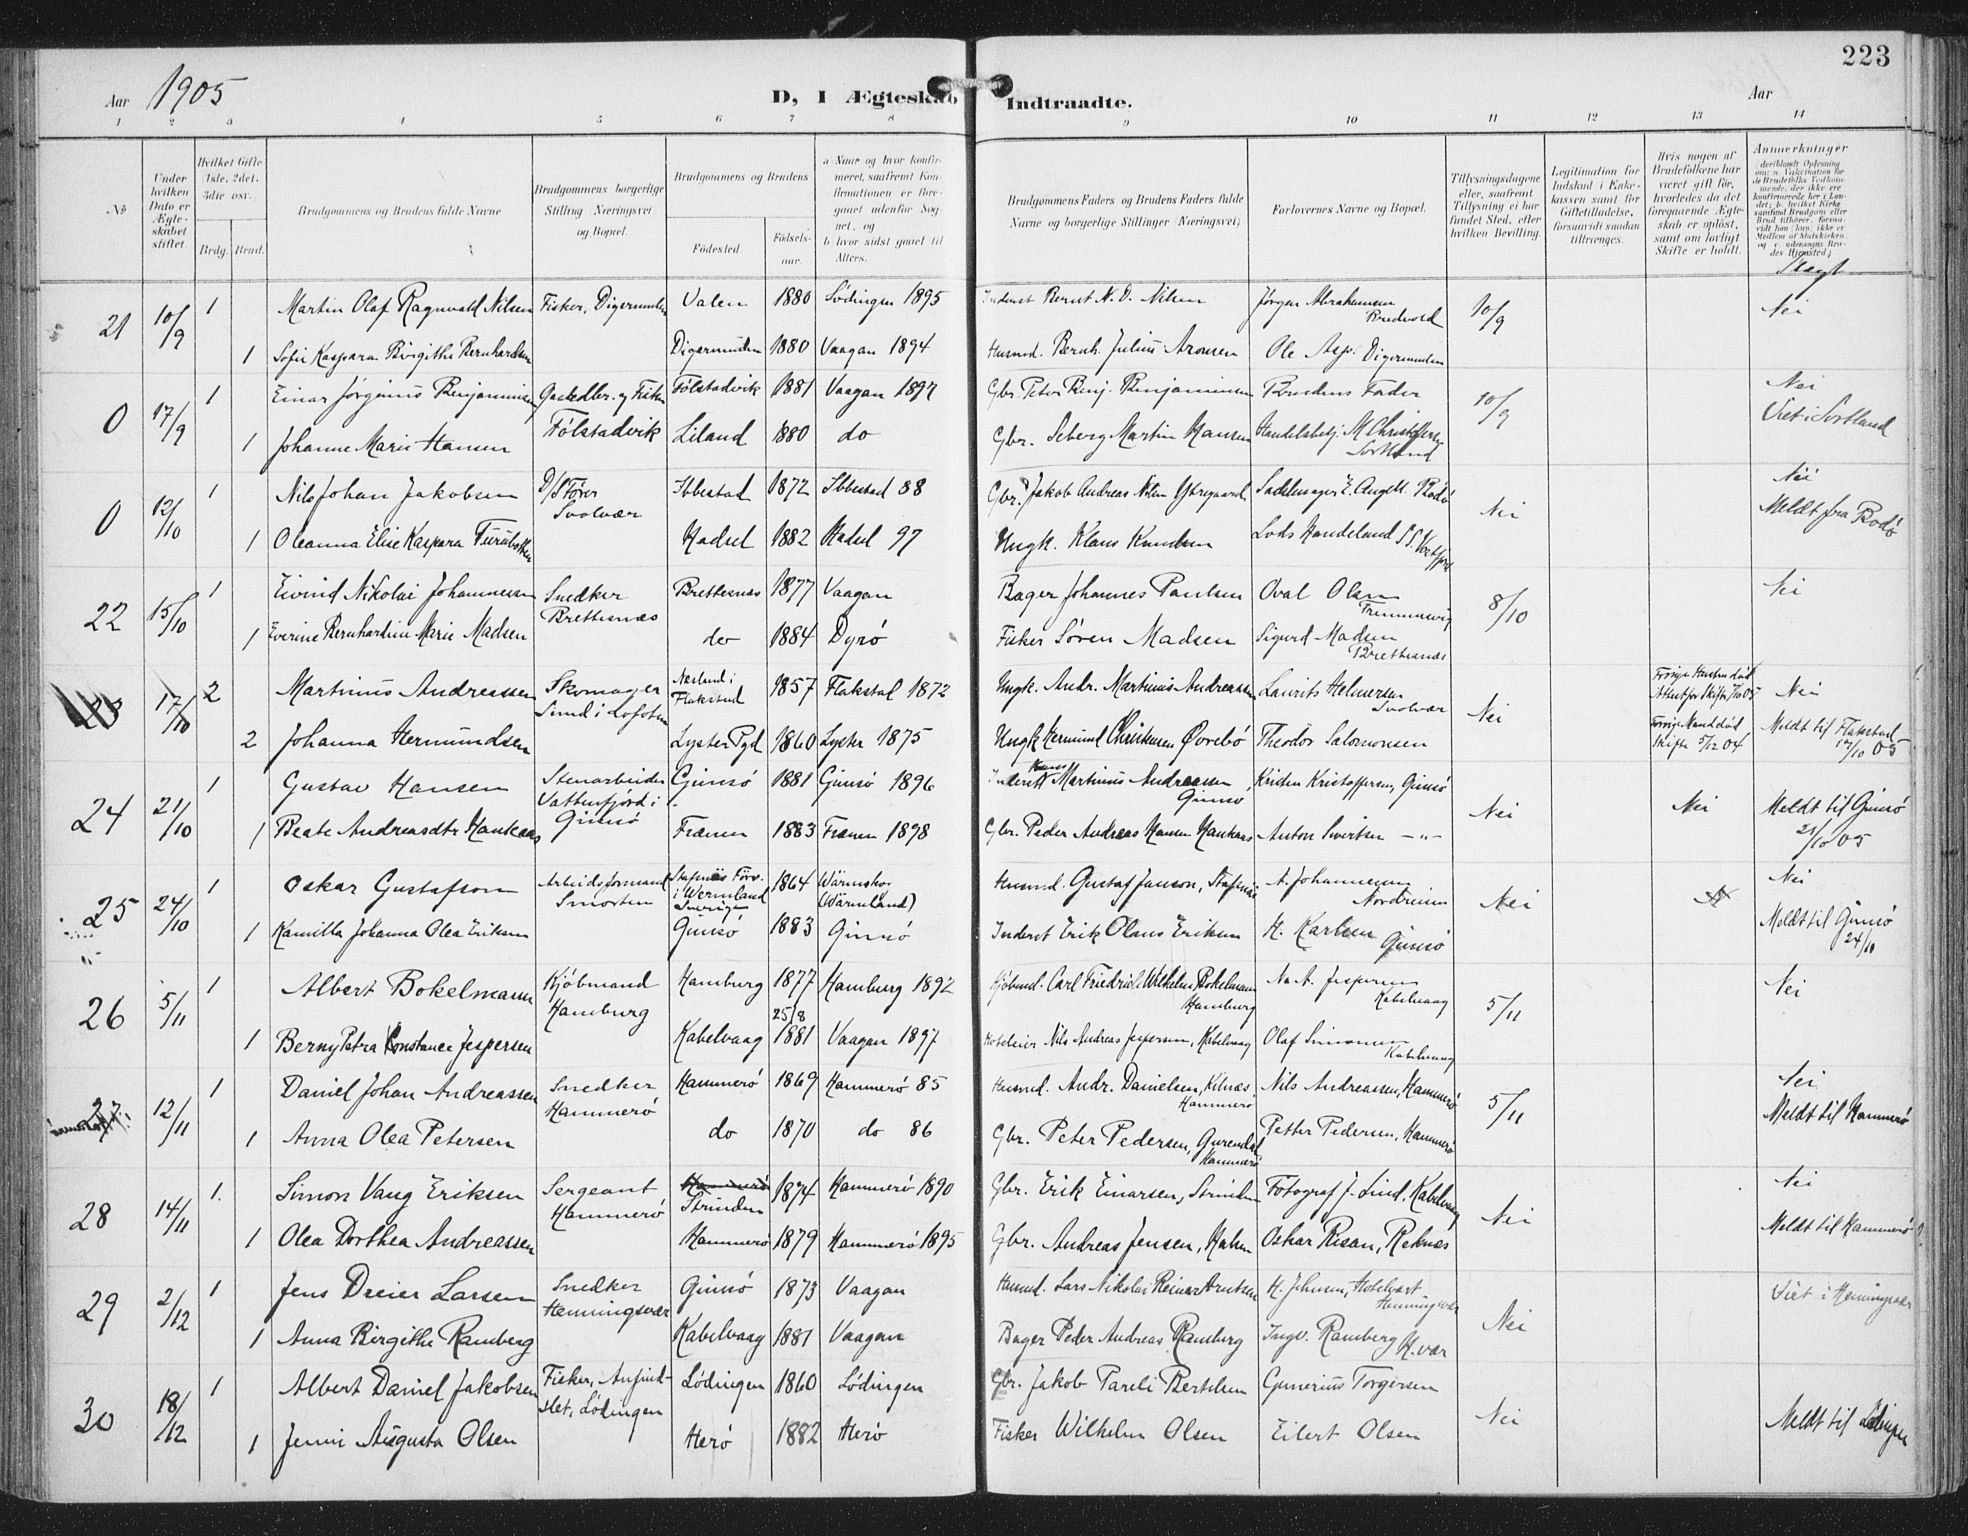 223
Aar 1905
D, I Ægteskab Indtraadte.
Aar
1 2 3 4 5 6 7 8 9 10 11 12 13 14
No
Under hvilken Dato er Ægteskabet stiftet.
Hvilket Gifte 1ste, 2det, 3die osv.
Brdg. Brud.
Brudgommens og Brudens fulde Navne
Brudgommens borgerlige Stilling (Næringsvei) og Bopæl.
Brudgommens og Brudens
Fødested
Fødselsaar.
a. Naar og hvor konfirmeret, saafremt Konfirmationen er foregaaet udenfor Sognet, og
b. hvor sidst gaaet til Alters.
Brudgommens Faders og Brudens Faders fulde Navne og borgerlige Stillinger (Næringsvei)
Forlovernes Navne og Bopæl.
Tillysningsdagene eller, saafremt Tillysning ei har fundet Sted, efter hvilken Bevilling.
Legitimation for Indskud i Enkekassen samt for Giftetilladelse, forsaavidt saadan tiltrænges.
Hvis nogen af Brudefolkene har været gift før, hvorledes da det foregaaende Ægteskab er opløst, samt om lovligt Skifte er holdt.
Anmerkninger
Slegt
21 10/9 1 Martin Olaf Ragnvald Nilsen Fisker, Digermulen Valen 1880 Lødingen 1895 Inderst Bernt N. D. Nilsen Jørgen Abrahamsen Bredvold 10/9 Nei
1 Sofie Kaspara Birgithe Bernhardsen Digermulen 1880 Vaagan 1894 Husmd. Bernh. Julius Aronsen Ole Asp. Digermulen
0 17/9 1 Einar Jørginus Benjaminsen Gaardbr. og Fisker Følstadvik Følstadvik 1881 Vaagan 1897 Gbr. Peter Benj. Benjaminsen Brudens Fader 10/9 Nei
1 Johanne Marie Hansen Liland 1880 do Gbr. Seberg Martin Hansen Handelsbetj. M Christoffersen Sortland Viet i Sortland
0 12/10 1 Nils Johan Jakobsen D/S Fører Svolvær Ibbestad 1872 Ibbestad 88 Gbr. Jakob Andreas Nilsen Sadelmager E. Angell. Bodø Nei Nei
1 Oleanna Elise Kaspara Furubotten Hadsel 1882 Hadsel 97 Ungk. Klaus Knudsen Lods Handeland Meldt fra Bodø
22 15/10 1 Eivind Nikolai Johannessen Snedker Brettesnæs Brettesnæs 1877 Vaagan Bager Johannes Paulsen Oval Olsen 8/10 Nei
1 Everine Bernhardine Marie Madsen do 1884 Dyrø Fisker Søren Madsen Sigurd Madsen Brettesnæs
23 17/10 2 Martinus Andreassen Skomager Sund i Lofoten Næsland i Flakstad 1857 Flakstad 1872 Ungk. Andr. Martinus Andreassen Laurits Helmersen Svolvær Nei Forrige Hustru død Nei
2 Johanna Hermundsen Lyster Pgd 1860 Lyster 1875 Ungk. Hermund Christensen Øvrebø Theodor Salomonsen Forrige Mand død Skifte 5/12 04 Meldt til Flakstad 17/10 05
24 21/10 1 Gustav Hansen Stenarbeider Vatterfjord i Gimsø Gimsø 1881 Gimsø 1896 Inderst Hans Martinus Andreassen Gimsø Kristen Kristoffersen, Gimsø Nei Nei
1 Beate Andreasdtr Haukaas Frænen 1883 Frænen 1898 Gbr. Peder Andreas Hansen Haukaas Anton Sivertsen —"— Meldt til Gimsø 21/10 05
25 24/10 1 Oskar Gustafson Arbeidsformand Smorten i Wermland Sverige 1864 (Wärmland) Husmd. Gustaf Janson, A. Johannessen Nordreisen Nei Nei
1 Kamilla Johanna Olea Eriksen Gimsø 1883 Gimsø Inderst Erik Olaus Eriksen H. Karlsen Gimsø Meldt til Gimsø 24/10
26 5/11 1 Albert Bokelmann Kjøbmand Hamburg Hamburg 1877 Hamburg 1892 Kjøbmd. Carl Friedrich Wilhelm Bokelmann Hamburg N. A. Jespersen Kabelvaag 5/11 Nei
1 Berny Petra Constance Jespersen Kabelvaag 25/8 1881 Vaagan 1897 Hoteleier Nils Andreas Jespersen, Kabelvaag Olaf Simonsen Kabelvaag
27 12/11 1 Daniel Johan Andreassen Snedker Hammerø Hammerø 1869 Hammerø 85 Husmd. Andr. Danielsen, Kilnæs Hammerø Nils Andreassen, Hammerø 5/11 Nei
1 Anna Olea Petersen do 1870 do 86 Gbr. Peter Pedersen, Hammerø Petter Pedersen, Hammerø Meldt til Hammerø
28 14/11 1. Simon Vang Eriksen Sergeant Hammerø Hammerø Strinden 1874 Hammerø 1890 Gbr. Erik Einarsen, Strinden Fotograf J. Lind, Kabelvaag Nei Nei
1 Olea Dorthea Andreassen Hammerø 1879 Hammerø 1895 Gbr. Andreas Jensen, Oskar Risan, Meldt til Hammerø
29 2/12 1 Jens Dreier Larsen Snedker Henningsvær Gimsø 1873 Vaagan Husmd. Lars Nikolai Reinert Arntsen H. Johnsen, Hotelvært Henningsvær Nei Viet i Henningsvær
1 Anna Birgithe Ramberg Kabelvaag 1881 Vaagan Bager Peder Andreas Ramberg Ingv. Ramberg H.vær
30 18/12 1 Albert Daniel Jakobsen Fisker, Lødingen Lødingen 1860 Lødingen Gbr. Jakob Pareli Bertelsen Gunerius Torgersen Nei
1 Jenni Augusta Olsen Herø 1882 Herø Fisker Wilhelm Olsen Eilert Olsen Meldt til Lødingen